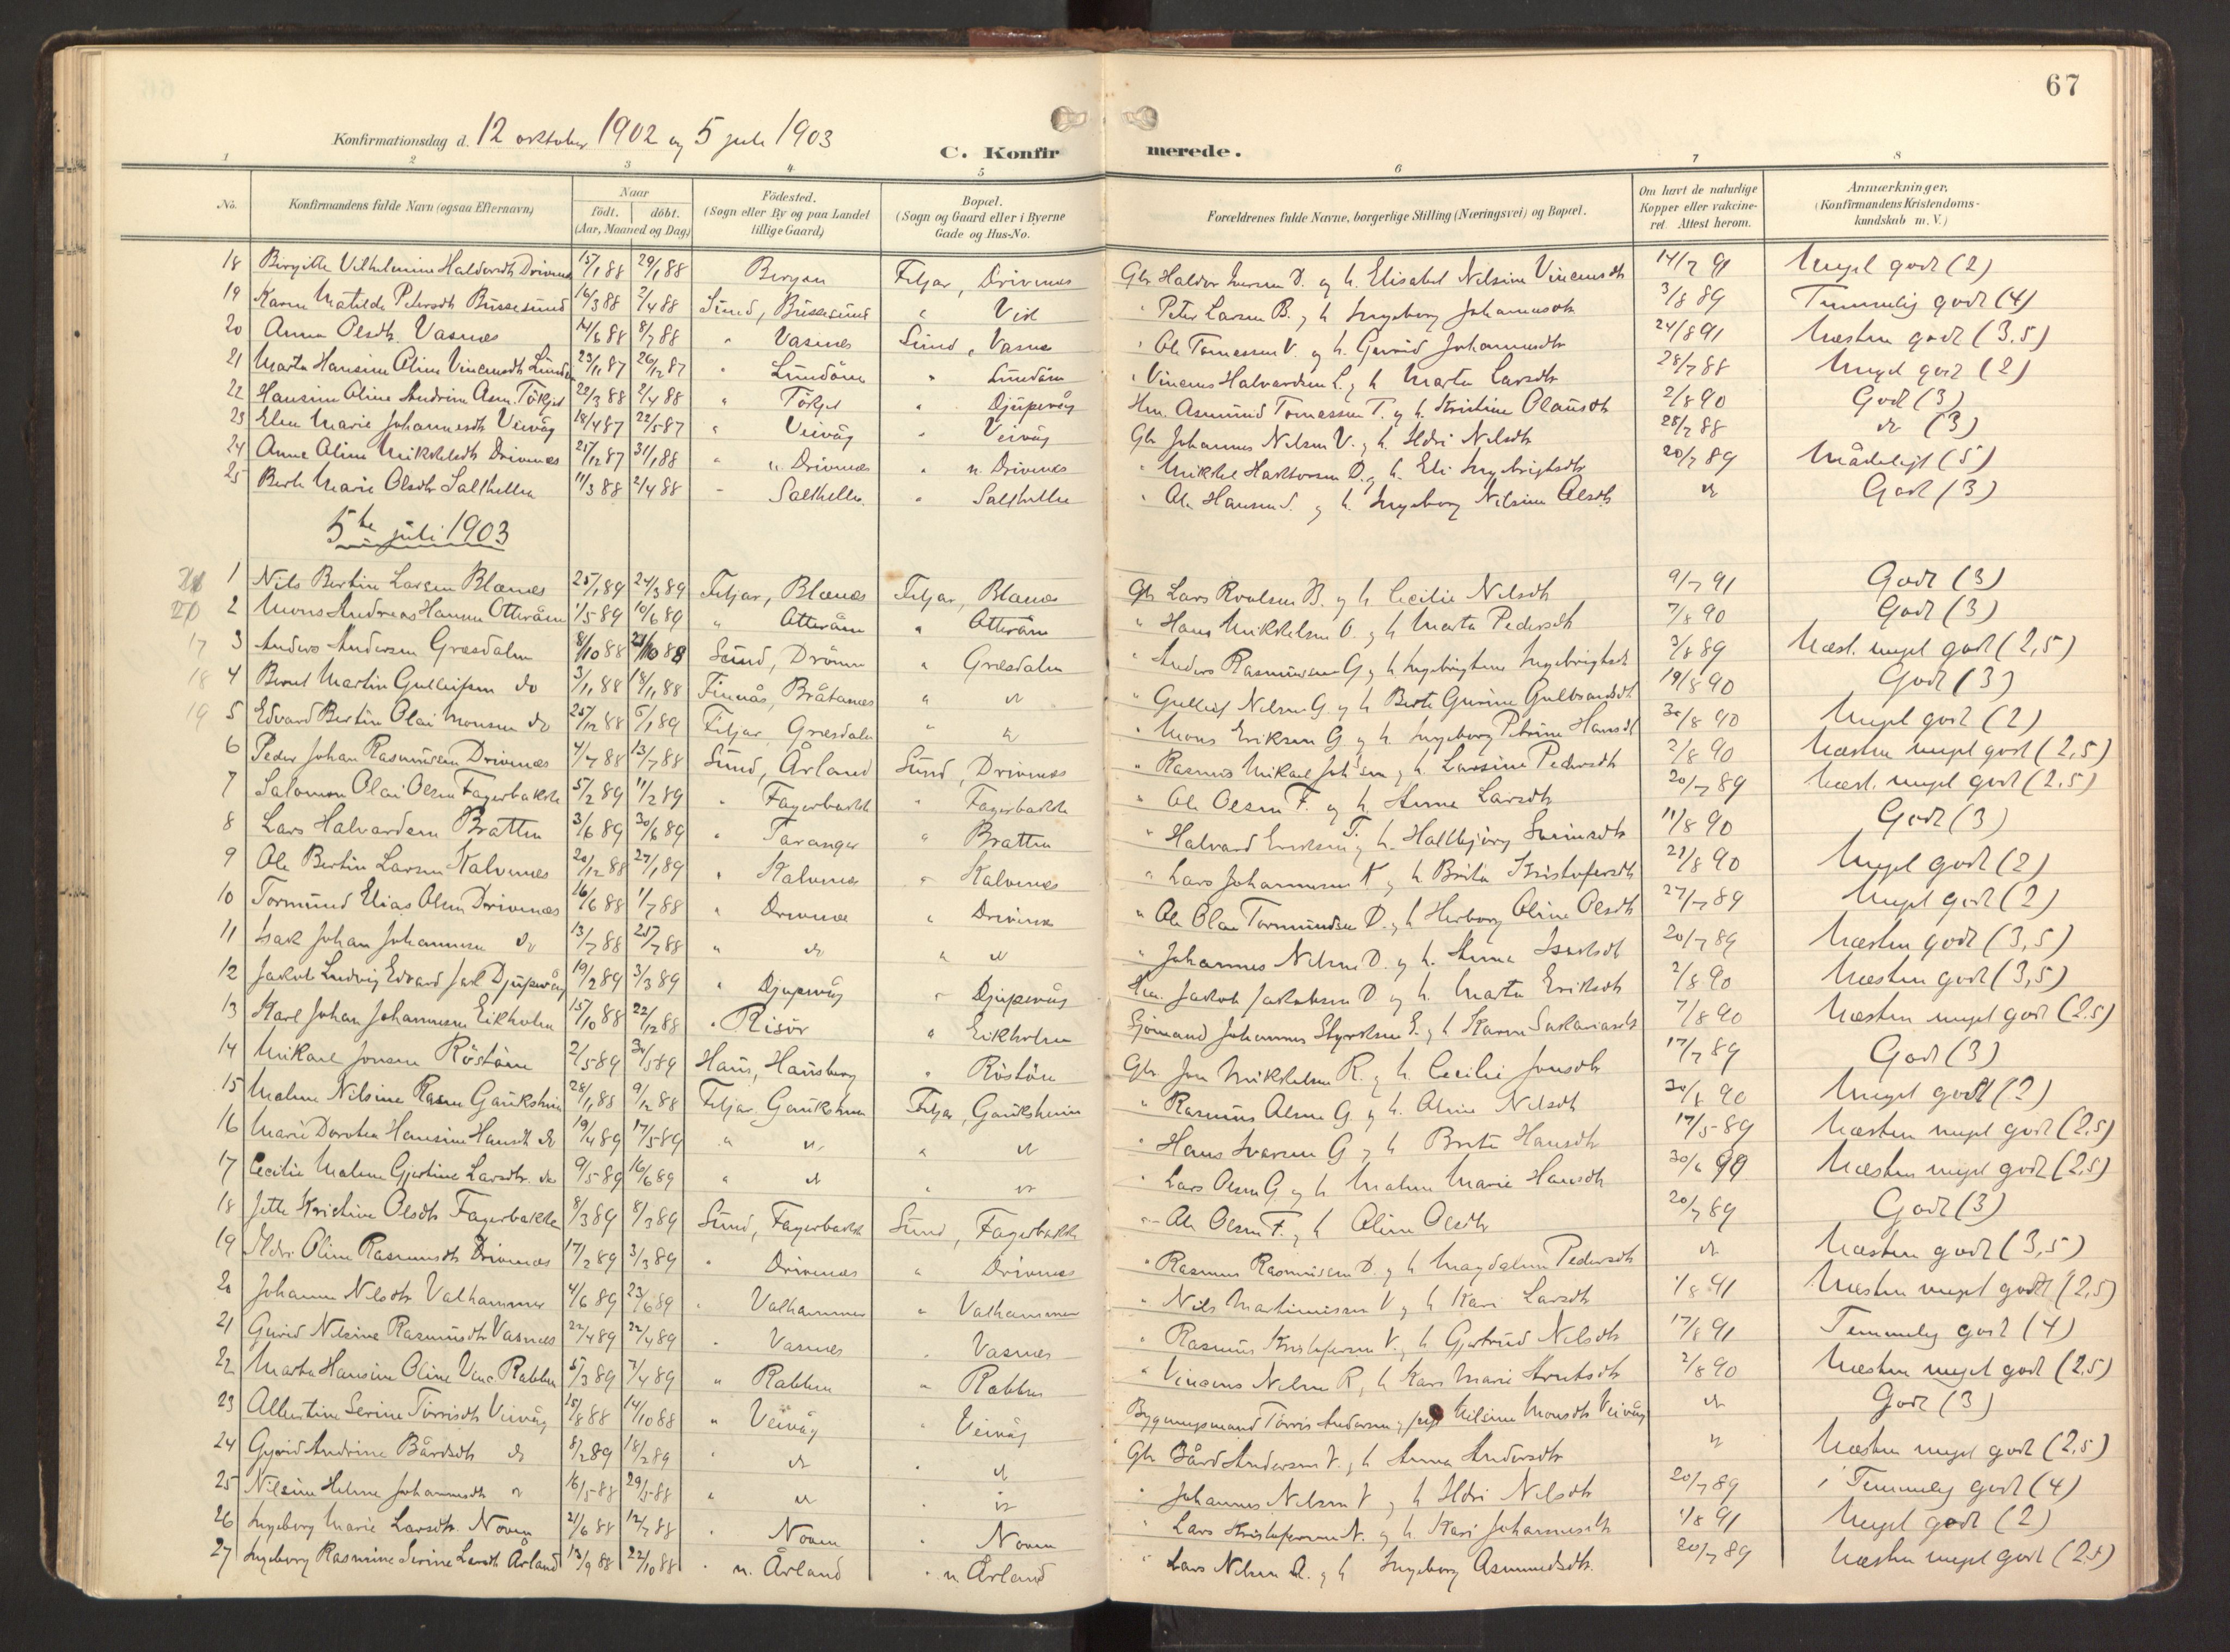 67
Konfirmationsdag d. 12 oktober 1902 og 5 juli 1903
C. Konfirmerede.
1 2 3 4 5 6 7 8
No. Konfirmandens fulde Navn (ogsaa Efternavn) Naar født. døbt. (Aar, Maaned og Dag) Fødested. (Sogn eller By og paa Landet tillige Gaard) Bopæl. (Sogn og Gaard eller i Byerne Gade og Hus-No. Forældrenes fulde Navne, borgerlige Stilling (Næringsvei) og Bopæl. Om havt de naturlige Kopper eller vakcineret. Attest herom. Anmærkninger. (Konfirmandens Kristendomskundskab m. V.)
18 Birgitte Vilhelmine Haldorsdtr Drivenes 15/1 88 29/1 88 Bergen Fitjar, Drivenes Gbr Haldor Iversen D. og h. Elisabet Nilsine Vincensdtr 14/7 91 Meget godt (2)
19 Karen Matilde Petersdtr Bussesund 16/3 88 2/4 88 Sund, Bussesund " Vik " Peter Larsen B. og h Ingeborg Johannesdtr 3/8 89 Temmelig godt (4)
20 Anna Olsdtr. Vasnes 14/6 88 8/7 88 " Vasnes Sund, Vasnes " Ole Tomassen V. og h. Gurid Johannesdtr 24/8 91 Næsten godt (3.5)
21 Marta Hansine Oline Vincensdtr 23/11 87 26/12 87 " Lundøen " Lundøen " Vincens Halvardsen L. og h Marta Larsdtr 28/7 88 Meget godt (2)
22 Hansine Oline Andrine Asm. Tøkjet 22/3 88 2/4 88 " Tøkjet " Djupevåg Hm. Asmund Tomassen T. og h. Kristine Olausdtr 2/8 90 Godt (3)
23 Elen Marie Johannesdtr Veivåg 18/4 87 22/5 87 " Veivåg " Veivåg Gbr Johannes Nilsen V. og h. Ildri Nilsdtr 28/7 88 do (3)
24 Anne Oline Mikkelsdtr Drivenes 25/12 87 31/1 88 " n. Drivenes " n. Drivenes " Mikkel Haktorsen D. og h. Eli Ingebrigtsdtr 20/7 89 Mådeligt (5)
25 Berte Marie Olsdtr Salthella 11/3 88 2/4 88 " Salthella " Salthella " Ole Hansen S. og h. Ingeborg Nilsine Olsdtr do Godt (3)
5te juli 1903
21 1 Nils Bertin Larsen Blænes 25/1 89 24/3 89 Fitjar, Blænes Fitjar, Blænes Gbr Lars Roalsen B. og h Cecilie Nilsdtr 9/7 91 Godt (3)
20 2 Mons Andreas Hansen Otterøen 1/5 89 10/6 89 " Otterøen " Otterøen " Hans Mikkelsen O. og h Marta Pedersdtr 7/8 90 Godt (3)
17 3 Anders Andersen Græsdalen 8/10 88 Sund, " Græsdalen " Anders Rasmussen G og h Ingebrigtsdtr 3/8 89 Næst. meget godt (2,5)
18 4 Bernt Martin Gulleifsen do 3/11 88 18/11 88 Finnås, Bråtanes " do " Gulleif Nilsen G. og h Berte Gurine Gulbrandsdtr 19/8 90 Godt (3)
19 5 Edvard Bertin Olai Monsen do 25/12 88 6/1 89 Fitjar Græsdalen " do " Mons Eriksen G og h. Ingeborg Petrine Hansdtr 30/8 90 Meget godt (2)
6 Peder Johan Rasmussen Drivenes 4/7 88 13/7 88 Sund, Årland Sund, Drivenes " Rasmus Mikael og h. Larsine Pedersdtr 2/8 90 Næsten meget godt (2,5)
7 Salomon Olai Olsen Fagerbakke 5/2 89 11/2 89 " Fagerbakke " Fagerbakke " Ole Olsen F. og h. Anna Larsdtr 20/7 89 Næst. meget godt (2,5)
8 Lars Halvardsen Bratten 3/6 89 30/6 89 " Taranger " Bratten " Halvard Eriksen T. og h. Halbjørg Sveinsdtr 11/8 90 Godt (3)
9 Ole Bertin Larsen Kalvenes 20/12 88 27/1 89 " Kalvenes " Kalvenes " Lars Johannesen K og h Brita Kristofersdtr 28/8 90 Meget godt (2)
10 Tormund Elias Olsen Drivenes 16/6 88 1/7 88 " Drivenes " Drivenes " Ole Olai Tormundsen D. og h Herborg Oline Olsdtr 27/7 89 Meget godt (2)
11 Isak Johan Johannesen do 13/7 88 28/7 88 " do " do " Johannes Nilsen D. og h. Anna Isaksdtr 20/7 89 Næsten godt (3,5)
12 Jakob Ludvig Edvard Jak Djupevåg 19/2 89 3/3 89 " Djupevåg " Djupevåg Hm. Jakob Jakobsen D og h. Marta Eriksdtr 2/8 90 Næsten godt (3,5)
13 Karl Johan Johannesen Eikholm 15/10 88 22/12 88 " Risør " Eikholm Sjømand Johannes Styrksen E. og h Karen Sakariasdtr 7/8 90 Næsten meget godt (2.5)
14 Mikael Jonsen Røstøen 2/5 89 30/5 89 Haus, Hausberg " Røstøen Gbr Jon Mikkelsen R. og h. Cecilie Jonsdtr 17/7 89 Godt (3)
15 Malene Nilsine Rasm Gaukshein 28/1 88 9/12 88 Fitjar Gaukshein Fitjar, Gaukshein " Rasmus Olsen G. og h. Oline Nilsdtr 30/8 90 Meget godt (2)
16 Marie Dorotea Hansine Hansdtr do 19/4 89 17/5 89 " do " do " Hans Ivarsen G og h Brita Hansdtr 17/5 89 Næsten meget godt (2,5)
17 Cecilie Malene Gjertine Larsdtr. do 9/5 89 16/6 89 " do " do " Lars Olsen G og h Malene Marie Hansdtr 30/6 90 Næsten meget godt (2,5)
18 Jette Kristine Olsdtr Fagerbakke 8/3 89 8/3 89 Sund, Fagerbakke Sund, Fagerbakke " Ole Olsen F. og h Oline Olsdtr 20/7 89 Godt (3)
19 Ildri Oline Rasmusdtr Drivenes 17/2 89 3/3 89 " Drivenes " Drivenes " Rasmus Rasmussen D. og h Magdalena Pedersdtr do Næsten godt (3,5)
20 Johanne Nilsdtr Valhammer 4/6 89 23/6 89 " Valhammer " Valhammer " Nils Martinussen V og h Kari Larsdtr 1/8 91 Næsten meget godt (2,5)
21 Gurid Nilsine Rasmusdtr Vasnes 22/4 89 22/4 89 " Vasnes " Vasnes " Rasmus Kristofersen V. og h Gjertrud Nilsdtr 17/8 91 Temmelig godt (4)
22 Marta Hansine Oline Vinc. Rabben 5/3 89 7/4 89 " Rabben " Rabben " Vincens Nilsen R, h Kari Marie Arntsdtr 2/8 90 Næsten meget godt (2,5)
23 Albertine Serine Torrisdtr Veivåg 15/8 88 14/10 88 " Veivåg " Veivåg Bygningsmand Torris Andersen og Nilsine Monsdtr Veivåg do Godt (3)
24 Gjørid Andrine Bårdsdtr do 8/2 89 18/2 89 " do " do Gbr Bård Andersen V. og h Anna Andersdtr do Næsten meget godt (2,5)
25 Nilsine Helene Johannesdtr do 16/5 88 29/5 88 " do " do " Johannes Nilsen V og h Ildri Nilsdtr 20/7 89 Temmelig godt (4)
26 Ingeborg Marie Larsdtr. Noven 21/6 88 12/7 88 " Noven " Noven " Lars Kristofersen N. og h. Kari Johannesdtr 1/8 91 Meget godt (2)
27 Ingeborg Rasmine Serine Larsdtr Årland 13/9 88 22/10 88 " n. Årland " n. Årland " Lars Nilsen A. og h Ingeborg Asmundsdtr. 20/7 89 Næsten meget godt (2,5)